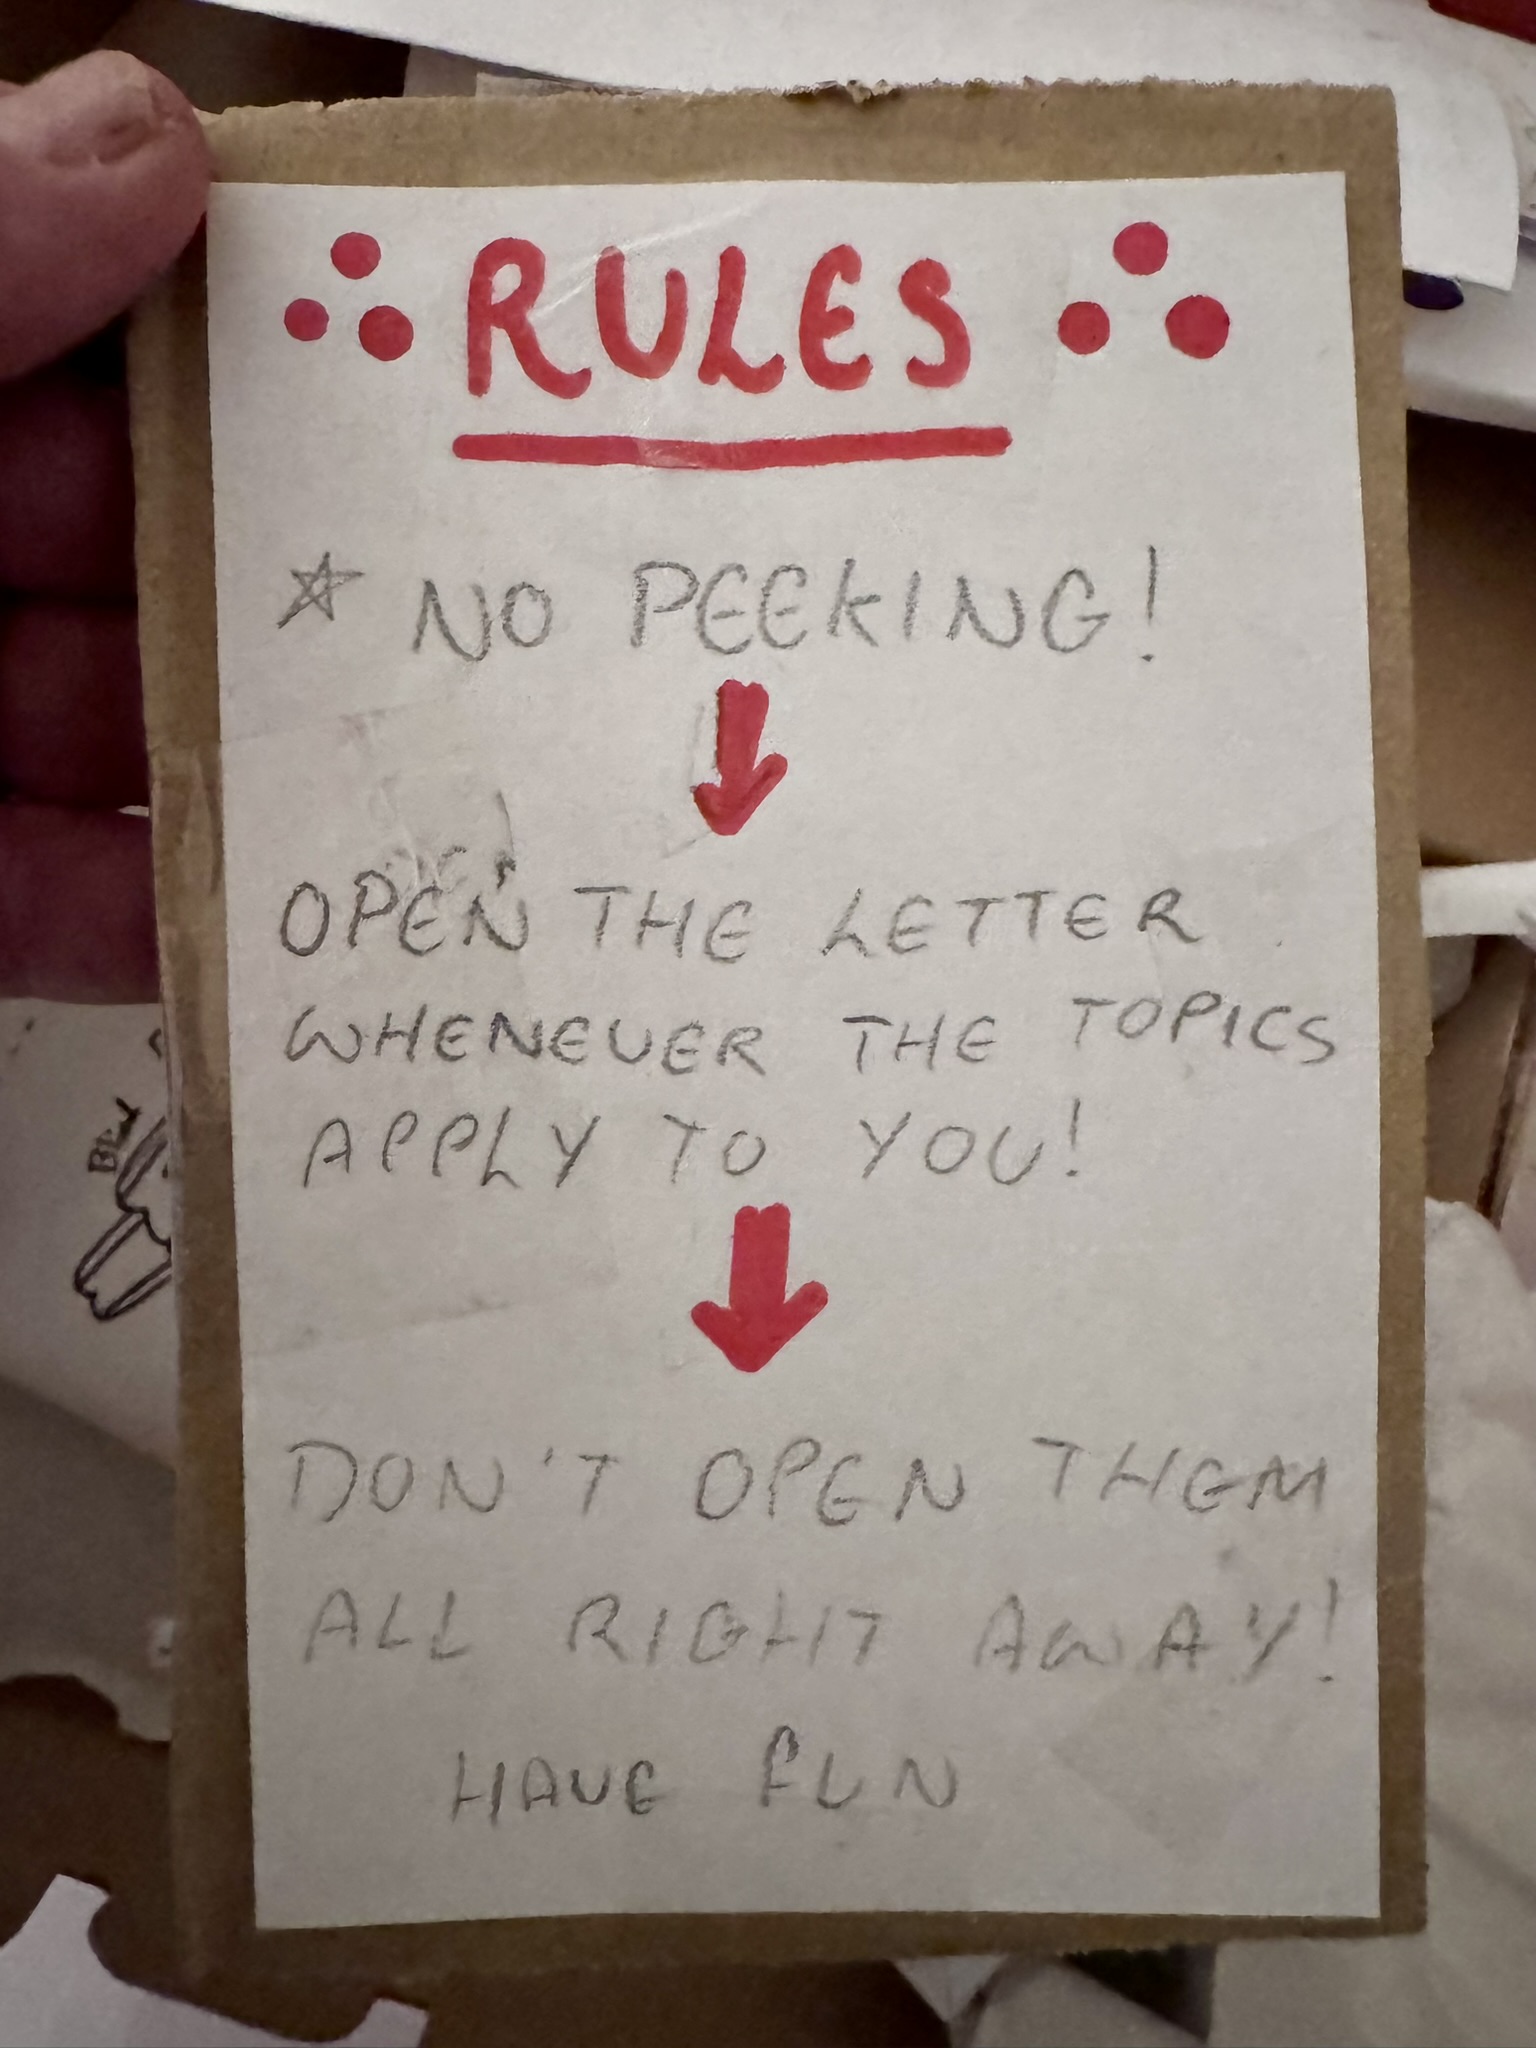 RULES
NO PEEKING!
OPEN THE LETTER
WHENEVER THE TOPICS
APPLY TO YOU!
DON'T OPEN THEM
ALL RIGHT AWAY!
HAVE FUN